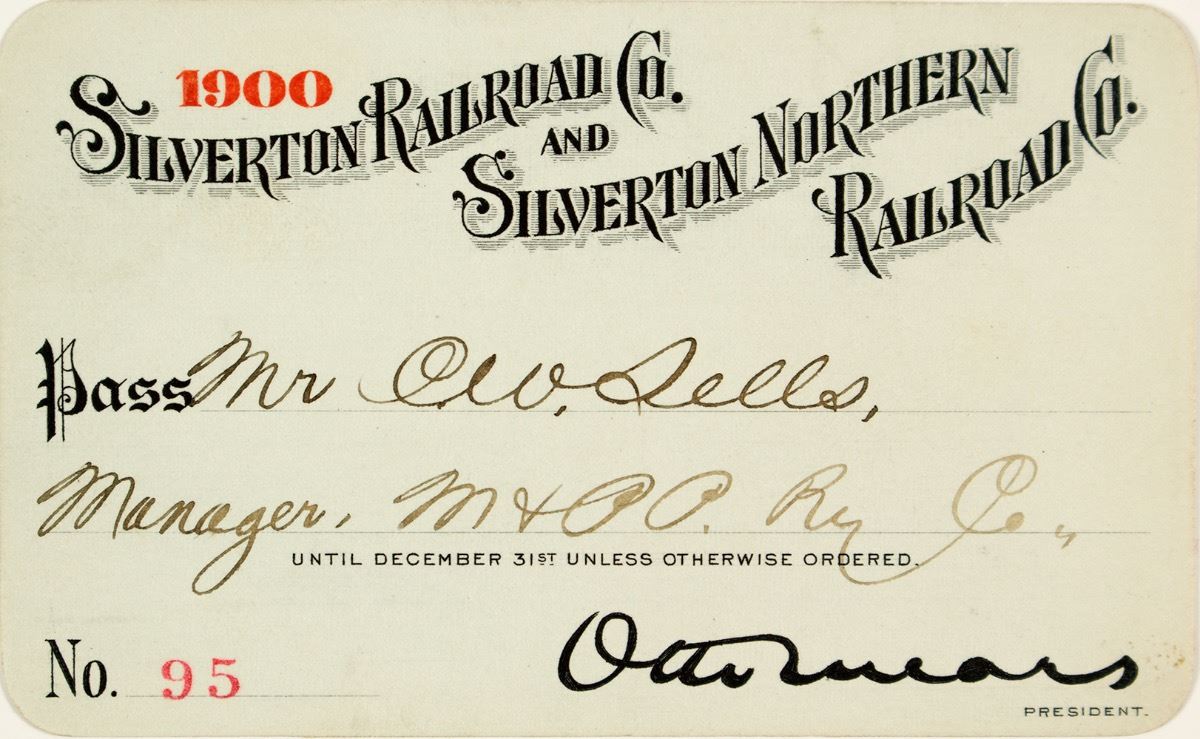 1900
SILVERTON RAILROAD CO.
AND
SILVERTON NORTHERN
RAILROAD CO.
Pass Mr C.W. Sells,
Manager, M & P P. Ry Co.,
UNTIL DECEMBER 31ST UNLESS OTHERWISE ORDERED.
No. 95
Otto Mears
PRESIDENT.